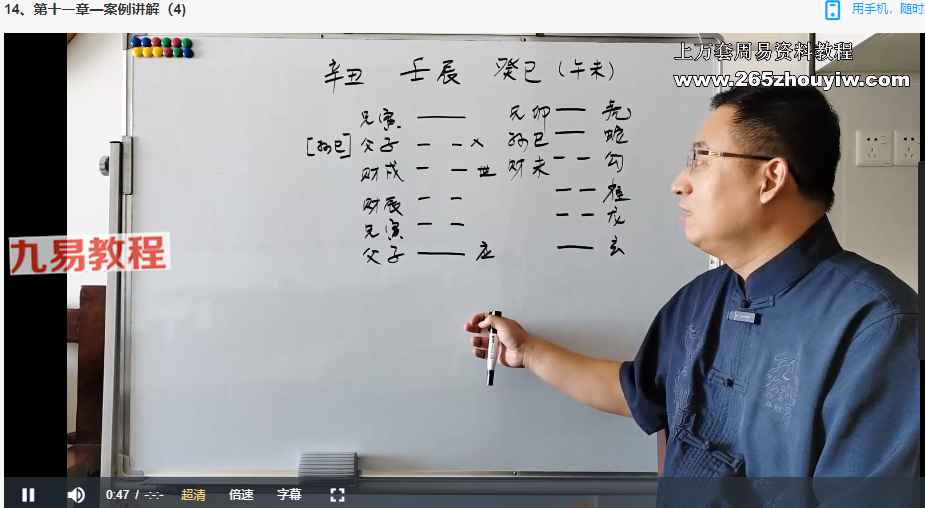 14、第十一章—案例讲解（4)
用手机，随时
上万套周易资料教程
www.265zhouyiw.com
辛丑 壬辰 癸巳（午未）
兄寅 兄卯 虎
[孙巳] 父子 × 孙巳 蛇
财戌 世 财未 勾
财辰
兄寅 龙
父子 应 玄
九易教程
0:47 / -:-:-
超清
倍速
字幕